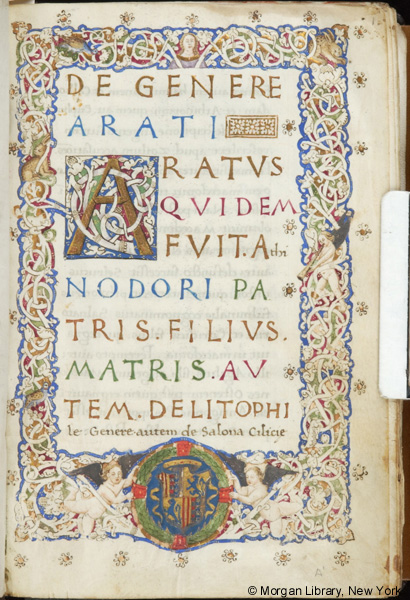 DE GENERE
ARATI
ARATUS
QUIDEM
FVIT. Athi
NODORI PA
TRIS. FILIVS.
MATRIS. AV
TEM. DELITOPHI
le Genere autem de Salona Cilicie
© Morgan Library, New York